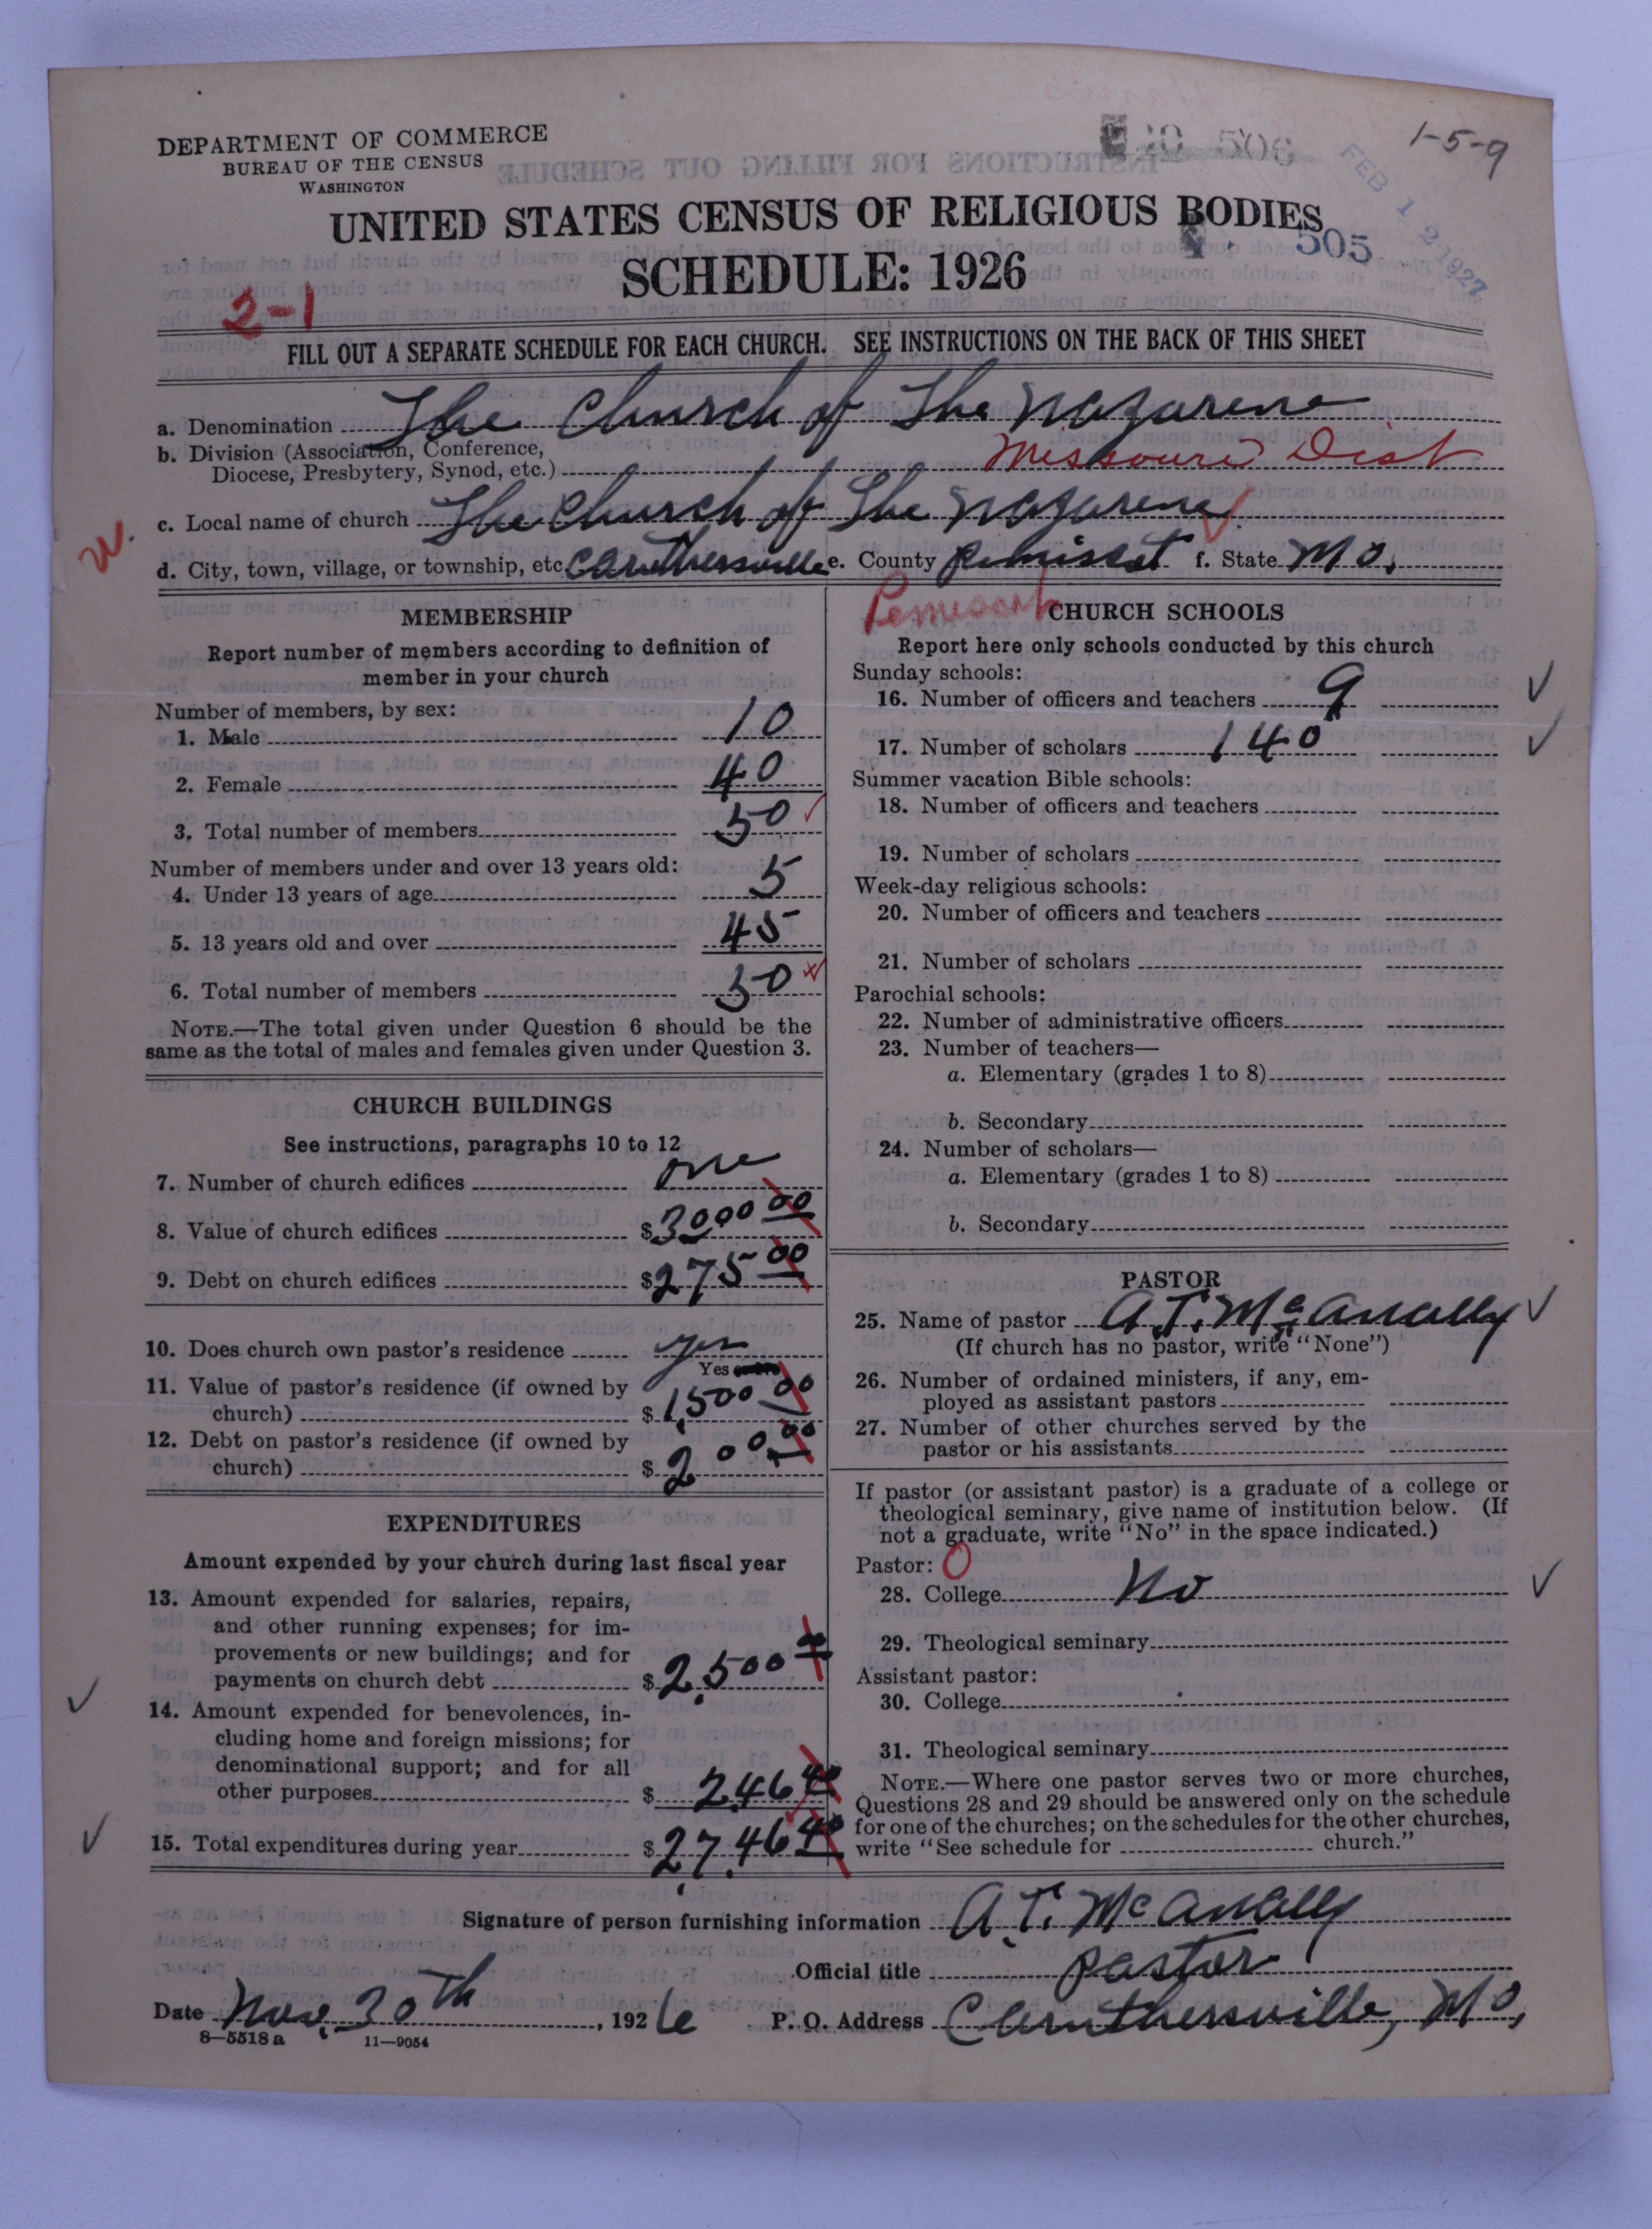 DEPARTMENT OF COMMERCE
BUREAU OF THE CENSUS
WASHINGTON
1-5-9
506
FEB 12 1927
UNITED STATES CENSUS OF RELIGIOUS BODIES
505
SCHEDULE: 1926
2-1
FILL OUT A SEPARATE SCHEDULE FOR EACH CHURCH. SEE INSTRUCTIONS ON THE BACK OF THIS SHEET
a. Denomination The Church of The Nazarene
b. Division (Association, Conference,
Diocese, Presbytery, Synod, etc.) Missouri Dist
c. Local name of church The Church of The Nazarene
d. City, town, village, or township, etc Caruthersville e. County Pemiscot f. State Mo.
MEMBERSHIP
Report number of members according to definition of
member in your church
Number of members, by sex:
1. Male 10
2. Female 40
3. Total number of members 50
Number of members under and over 13 years old:
4. Under 13 years of age 5
5. 13 years old and over 45
6. Total number of members 50
NOTE.—The total given under Question 6 should be the
same as the total of males and females given under Question 3.
CHURCH BUILDINGS
See instructions, paragraphs 10 to 12
7. Number of church edifices one
8. Value of church edifices $3000 00
9. Debt on church edifices $275 00
10. Does church own pastor's residence yes
Yes
11. Value of pastor's residence (if owned by
church) $1,500 00
12. Debt on pastor's residence (if owned by
church) $200.00
EXPENDITURES
Amount expended by your church during last fiscal year
13. Amount expended for salaries, repairs,
and other running expenses; for im-
provements or new buildings; and for
payments on church debt $2,500 00
14. Amount expended for benevolences, in-
cluding home and foreign missions; for
denominational support; and for all
other purposes $ 246 40
15. Total expenditures during year $2,746 40
Pemiscot
CHURCH SCHOOLS
Report here only schools conducted by this church
Sunday schools:
16. Number of officers and teachers 9
17. Number of scholars 140
Summer vacation Bible schools:
18. Number of officers and teachers
19. Number of scholars
Week-day religious schools:
20. Number of officers and teachers
21. Number of scholars
Parochial schools:
22. Number of administrative officers
23. Number of teachers—
a. Elementary (grades 1 to 8)
b. Secondary
24. Number of scholars—
a. Elementary (grades 1 to 8)
b. Secondary
PASTOR
25. Name of pastor A.T. McAnally
(If church has no pastor, write "None")
26. Number of ordained ministers, if any, em-
ployed as assistant pastors
27. Number of other churches served by the
pastor or his assistants
If pastor (or assistant pastor) is a graduate of a college or
theological seminary, give name of institution below. (If
not a graduate, write "No" in the space indicated.)
Pastor: 0
28. College No
29. Theological seminary
Assistant pastor:
30. College
31. Theological seminary
NOTE.—Where one pastor serves two or more churches,
Questions 28 and 29 should be answered only on the schedule
for one of the churches; on the schedules for the other churches,
write "See schedule for church."
Signature of person furnishing information A.T. McAnally
Official title pastor
Date Nov. 30th, 1926 P. O. Address Caruthersville, Mo,
8—5518 a 11—9054